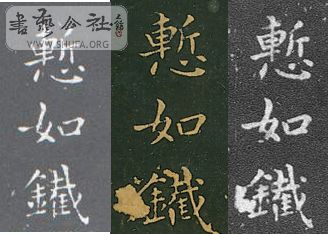 書藝公社
WWW.SHUFA.ORG
慙如鐵
慙如鐵
慙如鐵